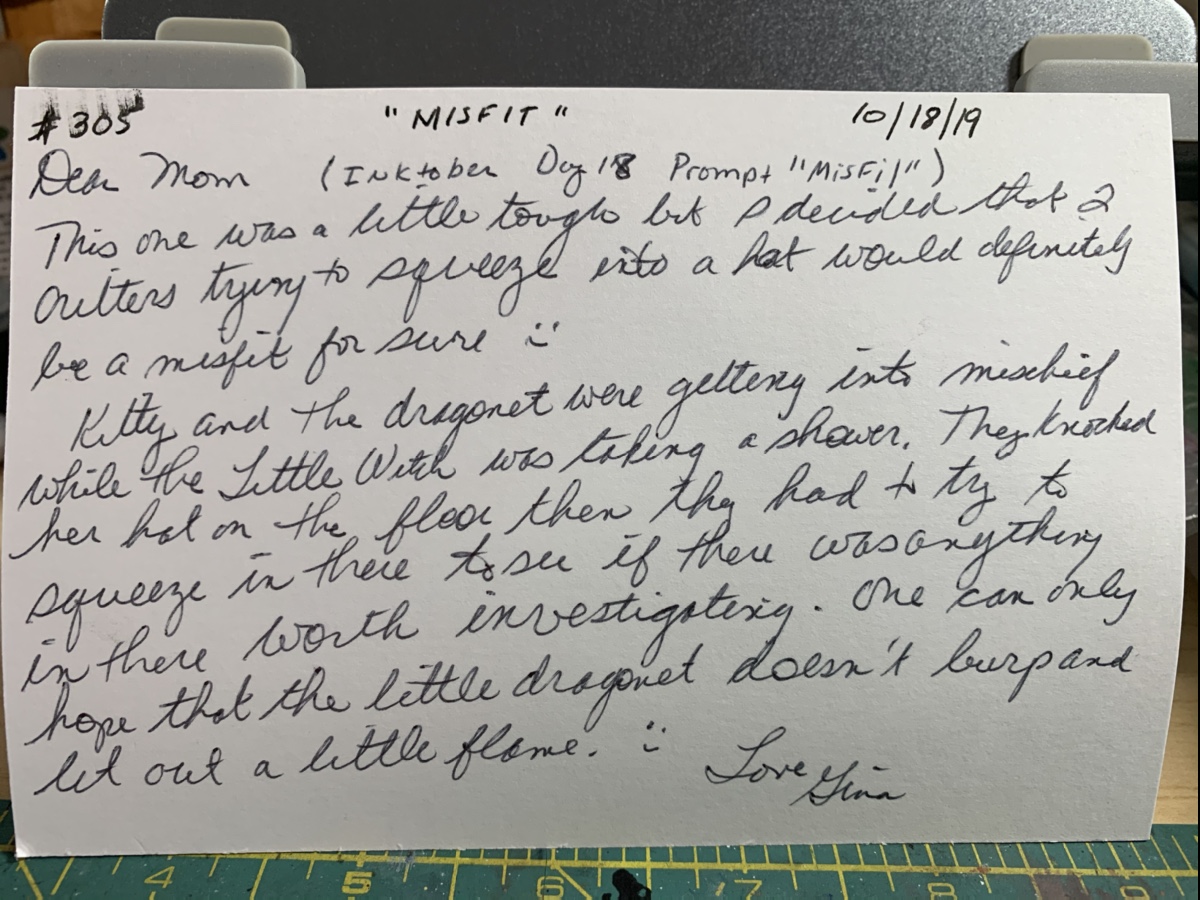 #305 "MISFIT" 10/18/19
Dear Mom (Inktober Day 18 Prompt "Misfit")
This one was a little tough but I decided that 2
critters trying to squeeze into a hat would definitely
be a misfit for sure :)
Kitty and the dragonet were getting into mischief
while the Little Witch was taking a shower. They knocked
her hat on the floor then they had to try to
squeeze in there to see if there was anything
in there worth investigating. One can only
hope that the little dragonet doesn't burp and
let out a little flame. :)
Love
Gina
4 5 6 7 8 9